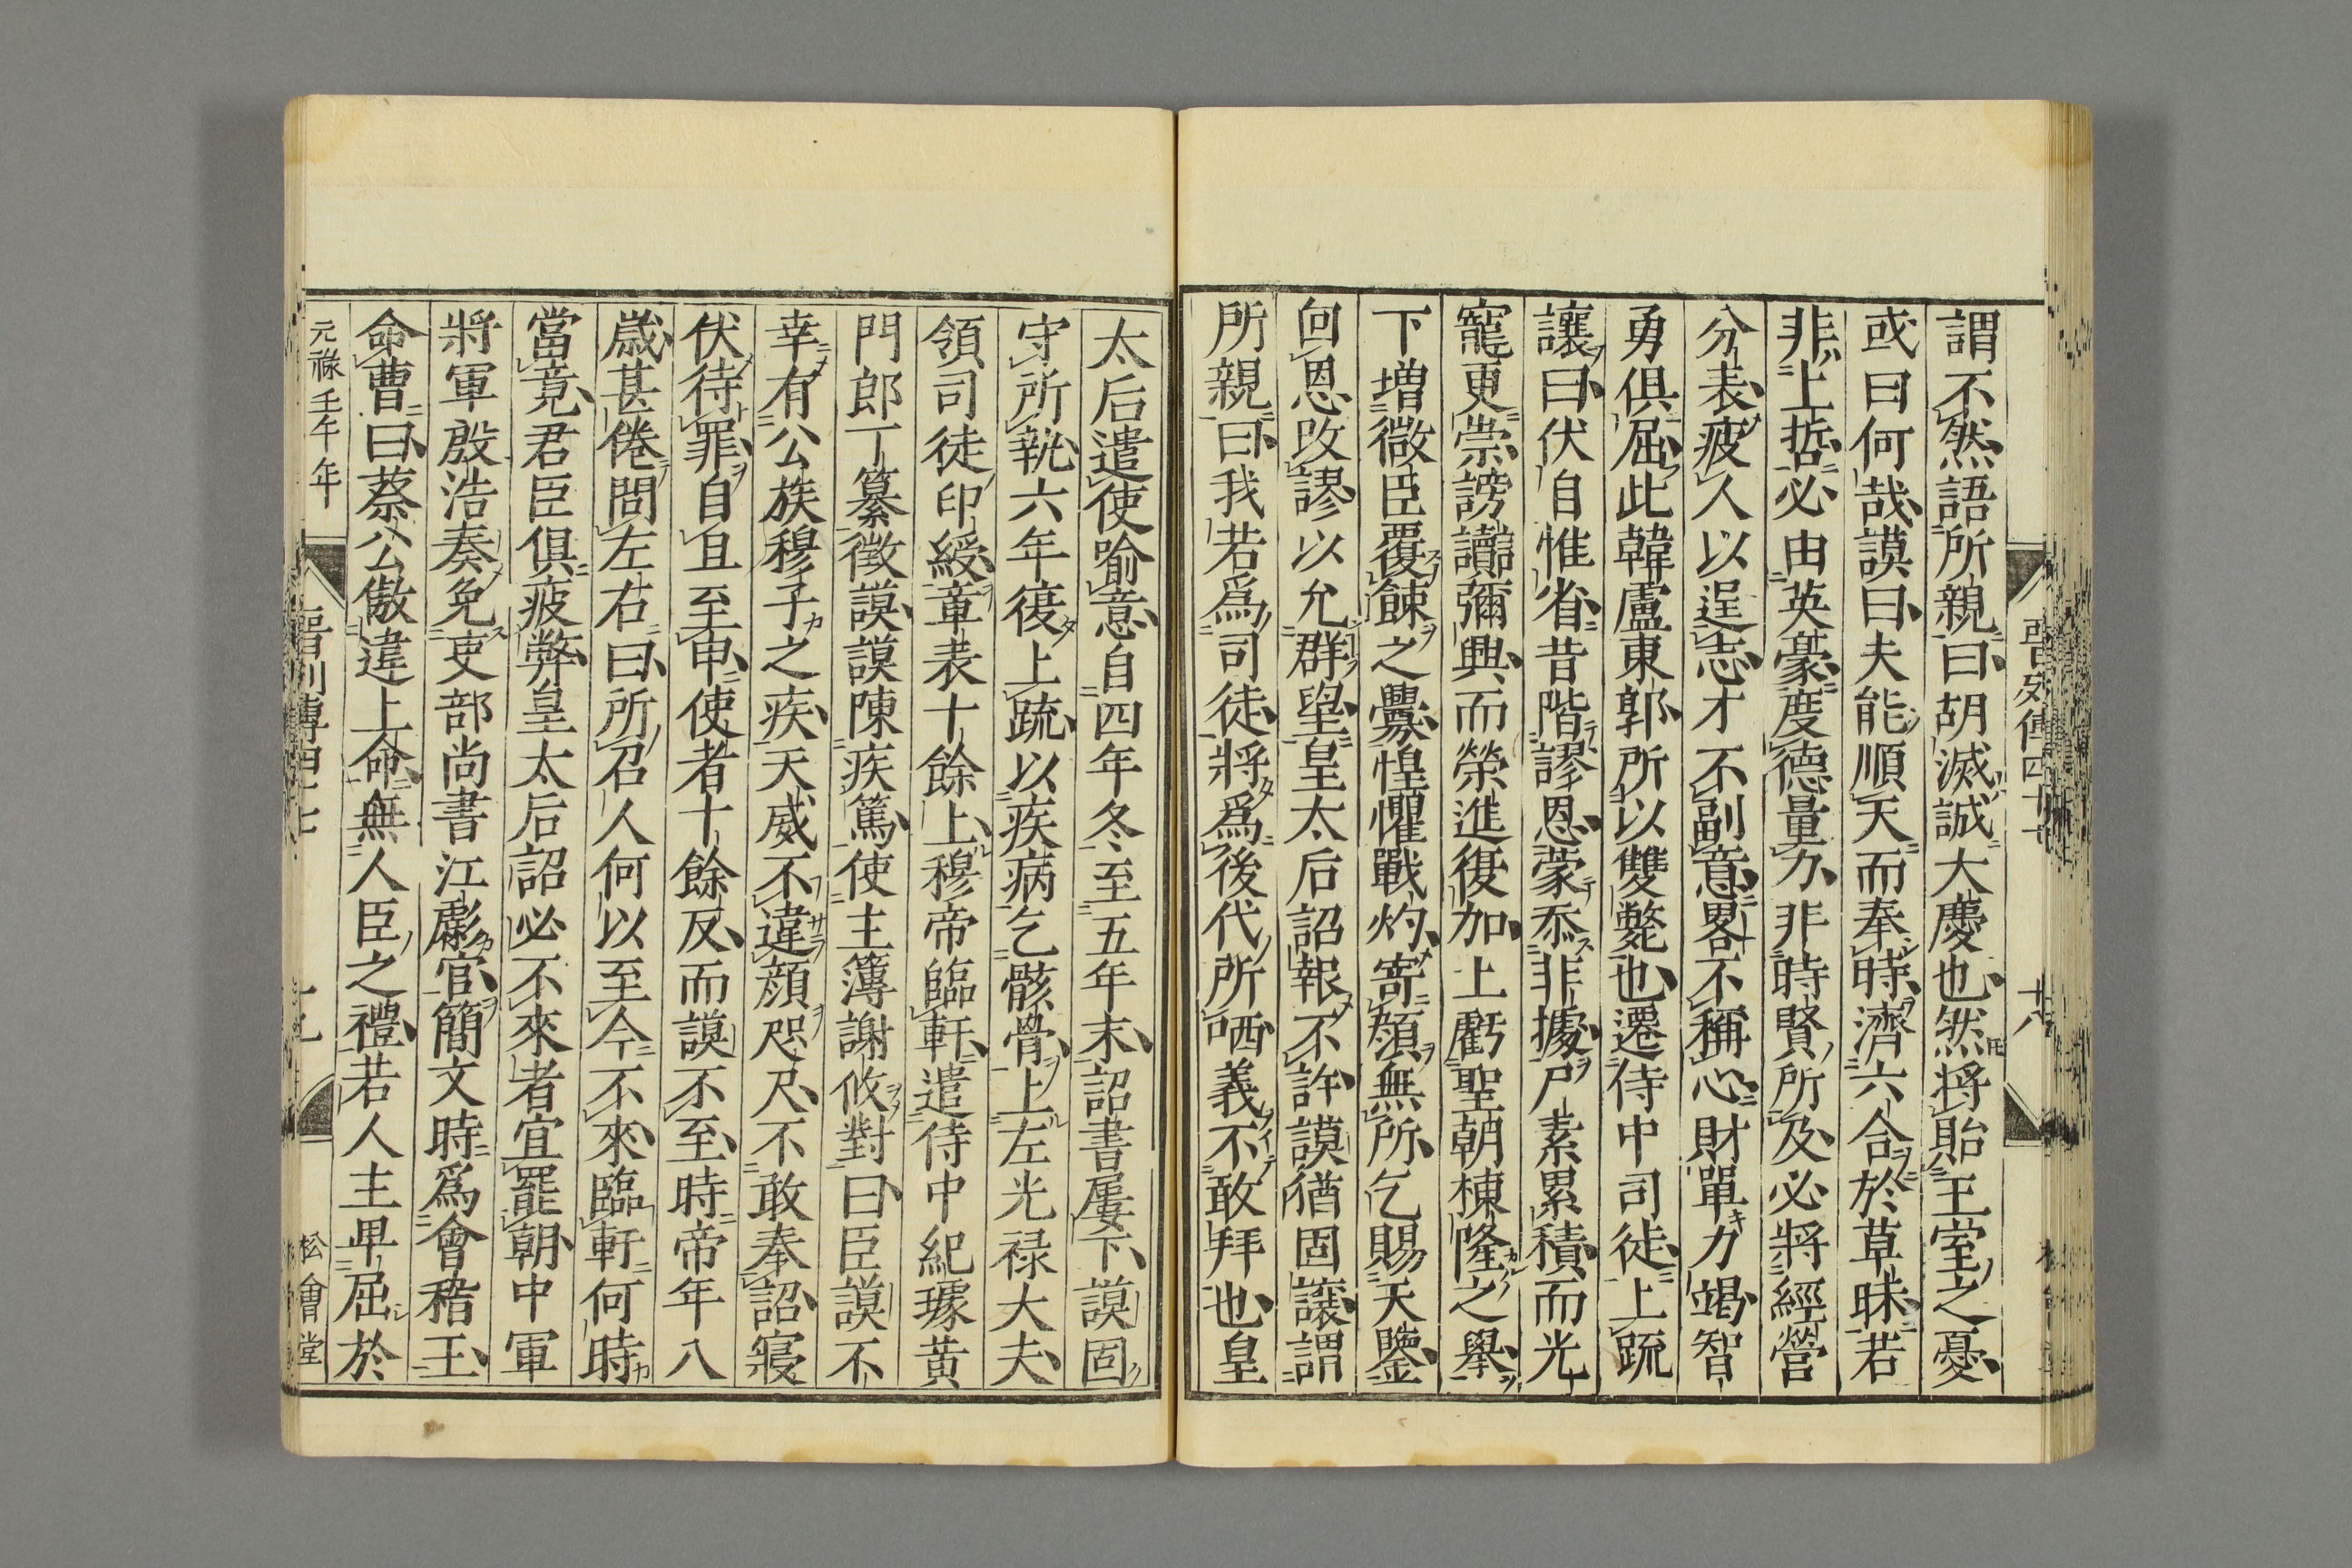 晉列傳四十七
廿八
謂不然語所親曰胡滅誠大慶也然將貽王室之憂
或曰何哉謨曰夫能順天而奉時濟六合於草昧若
非上哲必由英豪度德量力非時賢所及必將經營
分表疲人以逞志才不副意畧不稱心財單力竭智
勇俱屈此韓盧東郭所以雙斃也遷侍中司徒上疏
讓曰伏自惟省昔階謬恩蒙忝非據尸素累積而光
寵更崇謗讟彌興而榮進復加上虧聖朝棟隆之舉
下增微臣覆餗之釁惶懼戰灼寄顏無所乞賜天鑒
回恩改謬以允群望皇太后詔報不許謨猶固讓謂
所親曰我若爲司徒將爲後代所哂義不敢拜也皇
太后遣使喻意自四年冬至五年末詔書屢下謨固
守所執六年復上疏以疾病乞骸骨上左光禄大夫
領司徒印綬章表十餘上穆帝臨軒遣侍中紀璩黄
門郎丁纂徵謨謨陳疾篤使主簿謝攸對曰臣謨不
幸有公族穆子之疾天威不違顏咫尺不敢奉詔寢
伏待罪自旦至申使者十餘反而謨不至時帝年八
歲甚倦問左右曰所召人何以至今不來臨軒何時
當竟君臣俱疲弊皇太后詔必不來者宜罷朝中軍
將軍殷浩奏免吏部尚書江虨官簡文時爲會稽王
命曹曰蔡公傲違上命無人臣之禮若人主卑屈於
元祿壬午年
晉列傳四十七
松會堂